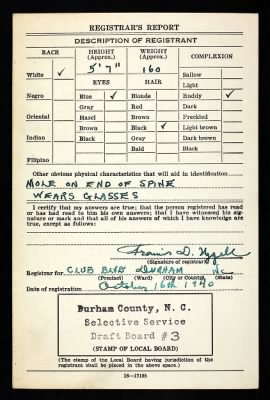 REGISTRAR'S REPORT
DESCRIPTION OF REGISTRANT
RACE HEIGHT (Approx.) WEIGHT (Approx.) COMPLEXION
5' 7" 160
White ✓ Sallow
EYES HAIR Light
Negro Blue ✓ Blonde Ruddy ✓
Gray Red Dark
Oriental Hazel Brown Freckled
Brown Black ✓ Light brown
Indian Black Gray Dark brown
Bald Black
Filipino
Other obvious physical characteristics that will aid in identification
MOLE ON END OF SPINE
WEARS GLASSES
I certify that my answers are true; that the person registered has read
or has had read to him his own answers; that I have witnessed his sig-
nature or mark and that all of his answers of which I have knowledge are
true, except as follows:
Francis D.
(Signature of registrar)
Registrar for CLUB BLVD DURHAM NC
(Precinct) (Ward) (City or County) (State)
Date of registration October 16th 1940
Durham County, N. C.
Selective Service
Draft Board #3
(STAMP OF LOCAL BOARD)
(The stamp of the Local Board having jurisdiction of the
registrant shall be placed in the above space.)
16-17105